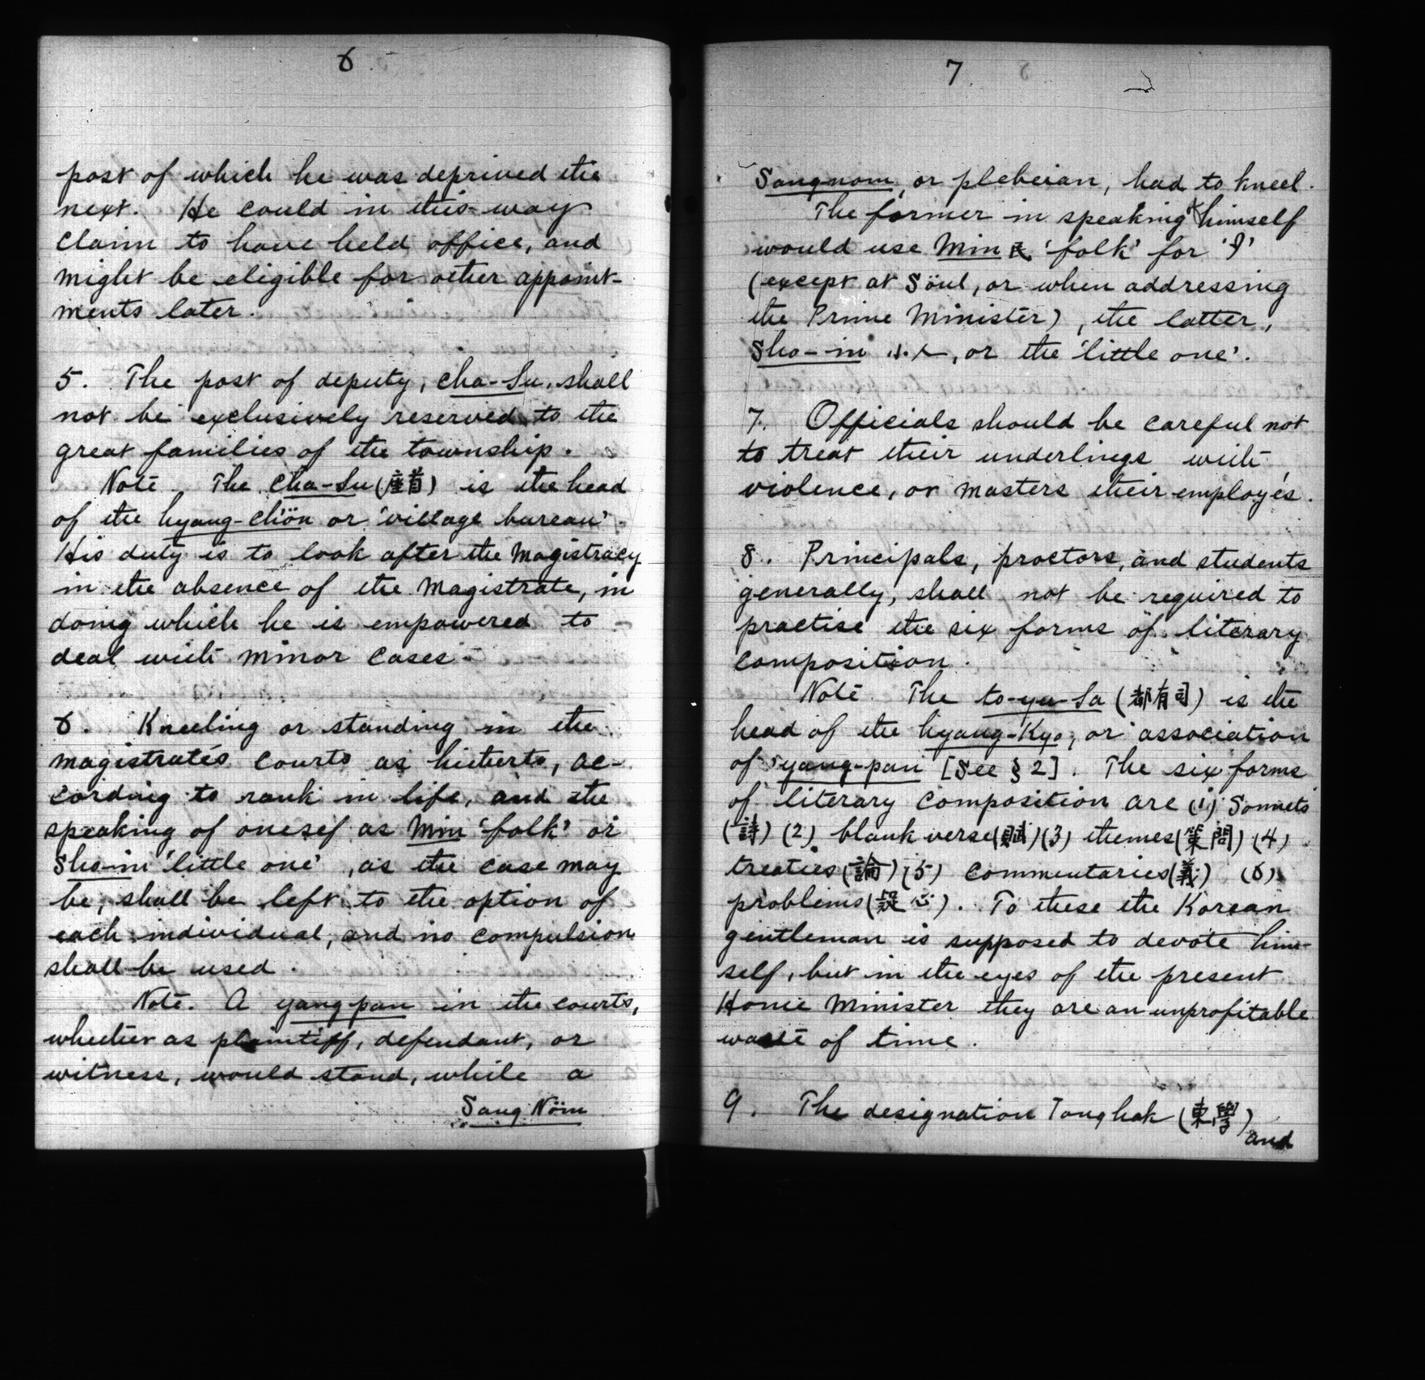 6
post of which he was deprived the
next. He could in this way
claim to have held office, and
might be eligible for other appoint-
ments later.
5. The post of deputy, cha-su, shall
not be exclusively reserved to the
great families of the township.
Note The cha-su (座首) is the head
of the hyang-chön or 'village bureau'.
His duty is to look after the Magistracy
in the absence of the Magistrate, in
doing which he is empowered to
deal with minor cases.
6. Kneeling or standing in the
magistrate's courts as hitherto, ac-
cording to rank in life, and the
speaking of onesef as Min 'folk' or
Sho-in 'little one', as the case may
be, shall be left to the option of
each individual, and no compulsion
shall be used.
Note. A yang pan in the courts,
whether as plaintiff, defendant, or
witness, would stand, while a
Sang Nöm
7
Sangnom, or plebeian, had to kneel.
The former in speaking of himself
would use Min 民 'folk' for 'I'
(except at Söul, or when addressing
the Prime Minister), the latter,
Sho-in 小人, or the 'little one'.
7. Officials should be careful not
to treat their underlings with
violence, or masters their employés.
8. Principals, proctors, and students
generally, shall not be required to
practise the six forms of literary
composition.
Note The to-yu-sa (都有司) is the
head of the hyang-Kyo, or association
of yang-pan [See § 2]. The six forms
of literary composition are (1) Sonnets
(詩) (2) blank verse (賦) (3) themes (策問) (4)
treaties (論) (5) commentaries (義) (6)
problems (疑心). To these the Korean
gentleman is supposed to devote him-
self, but in the eyes of the present
Home Minister they are an unprofitable
waste of time.
9. The designation Tong hak (東學)
and